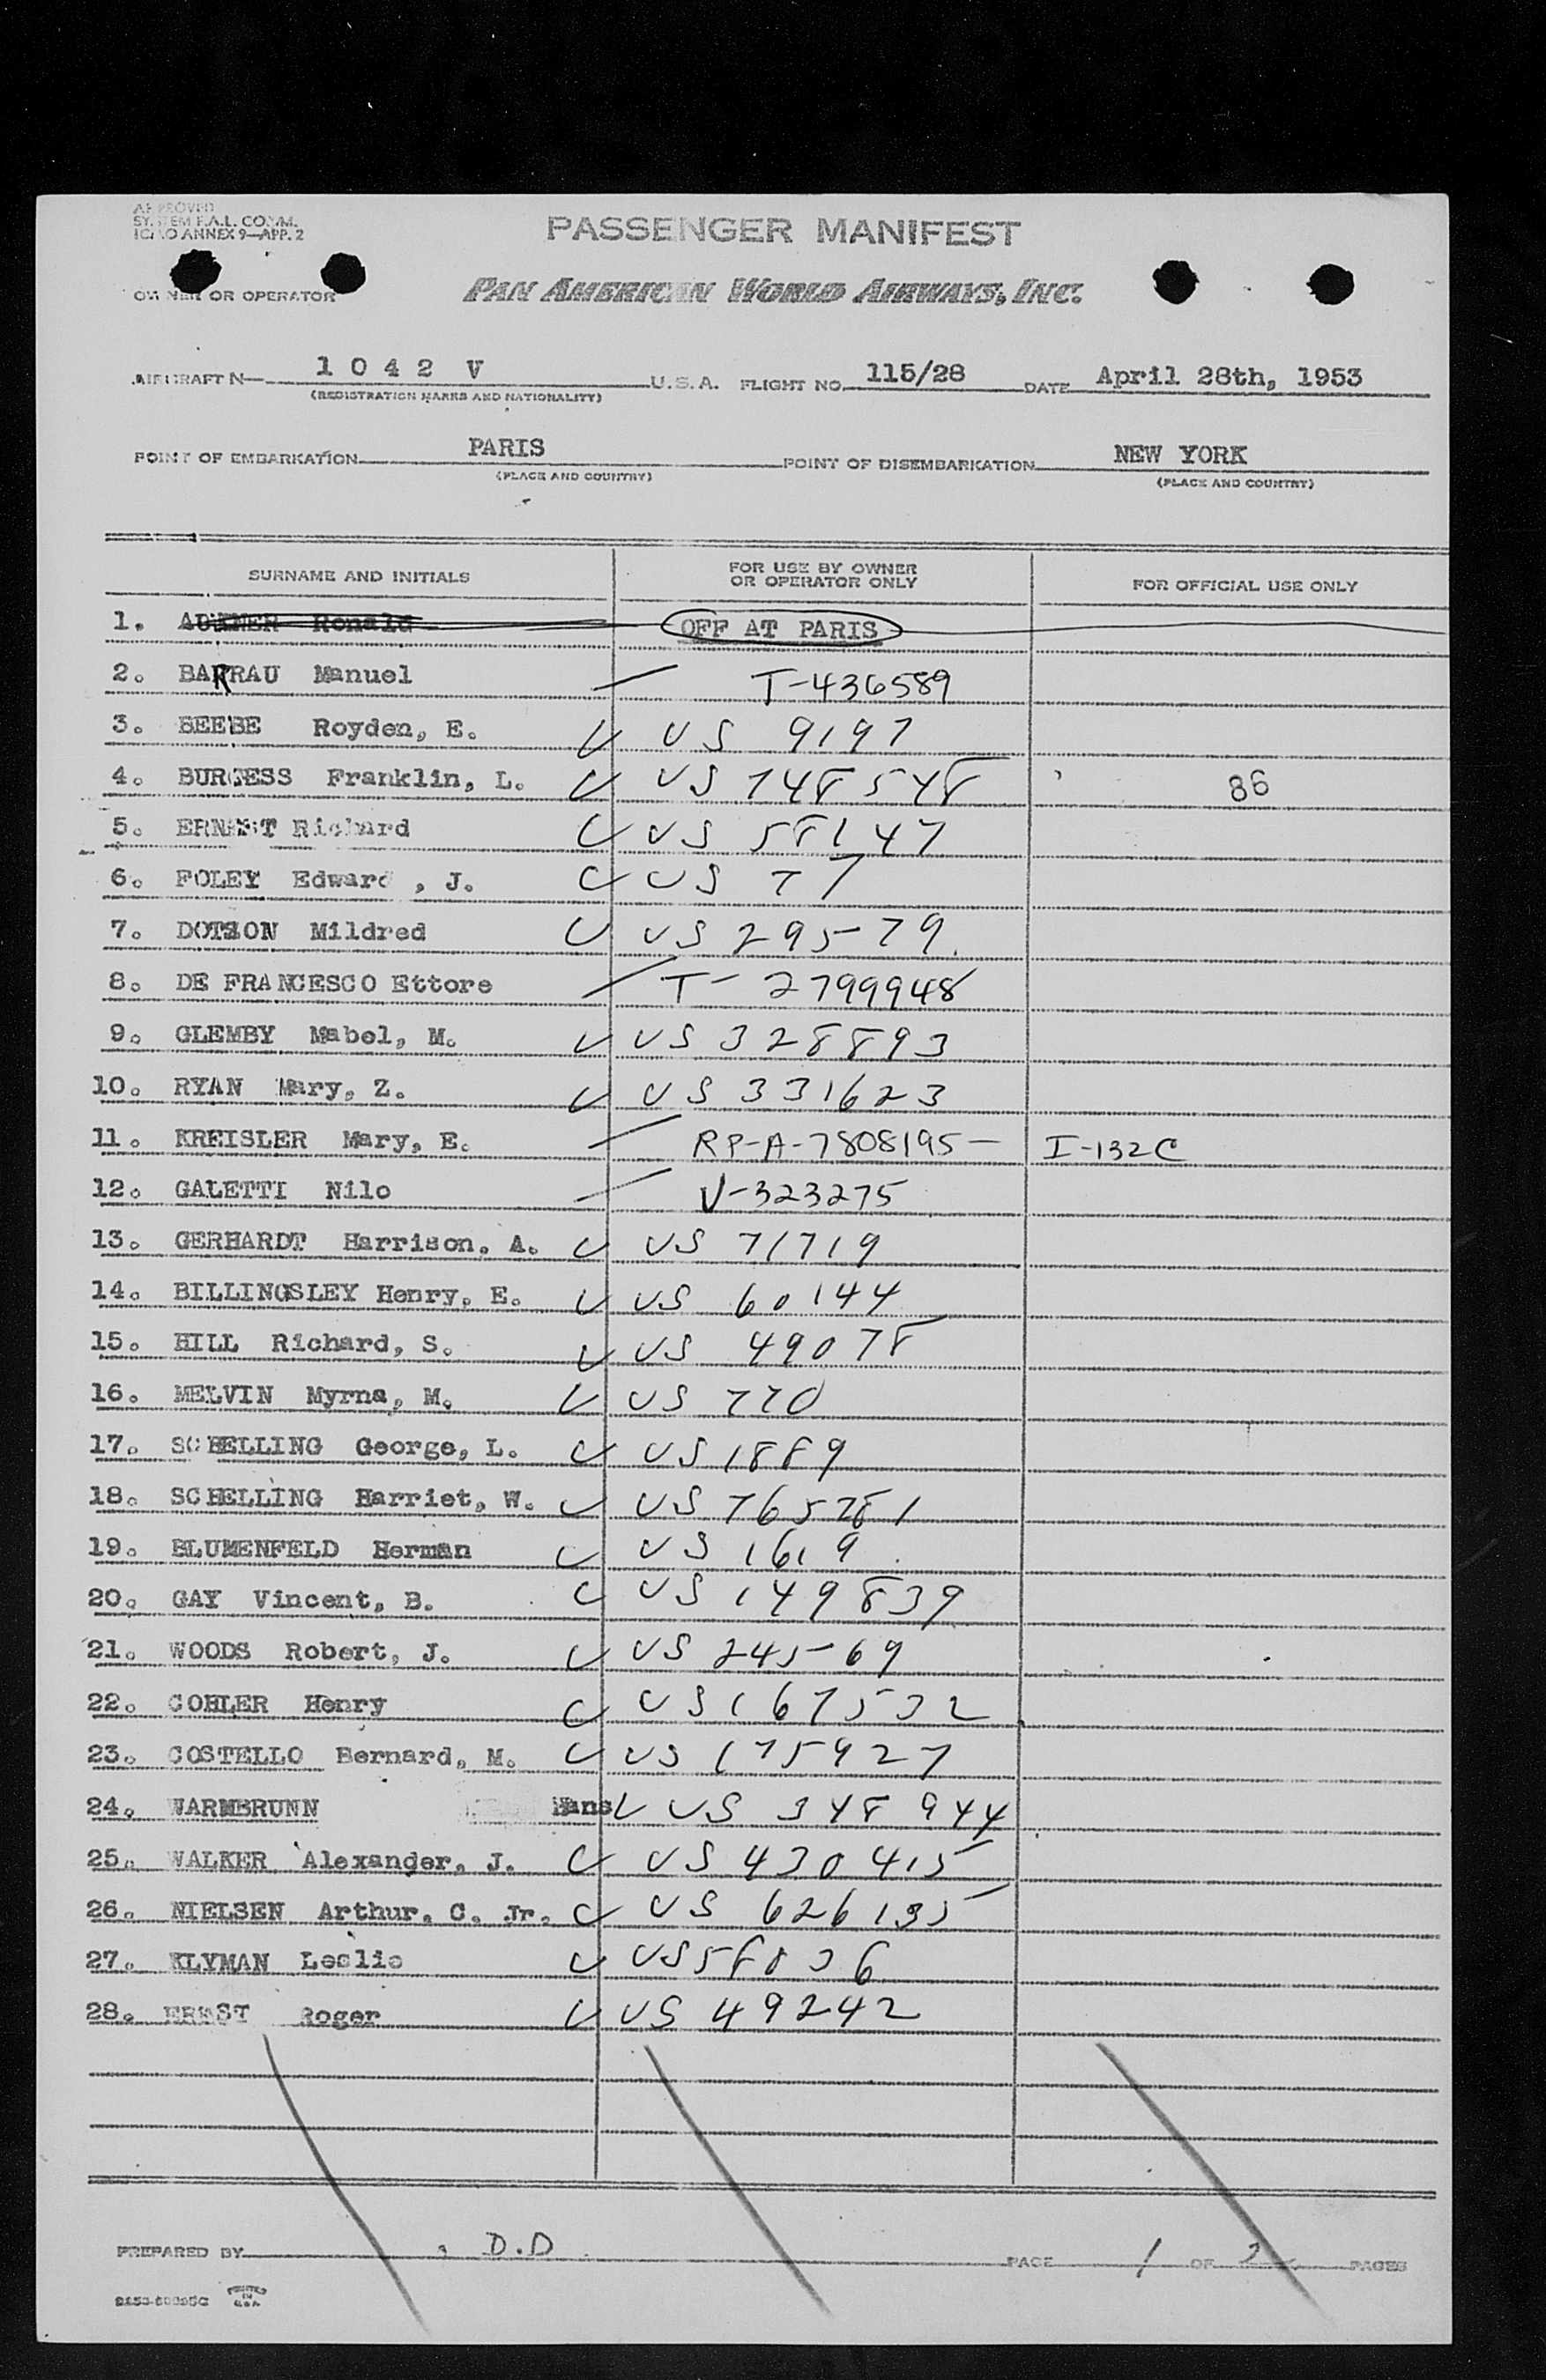 APPROVED
SYSTEM F.A.L. COMM.
ICAO ANNEX 9—APP. 2
PASSENGER MANIFEST
OWNER OR OPERATOR PAN AMERICAN WORLD AIRWAYS, INC.
AIRCRAFT N— 1 0 4 2 V U.S.A. FLIGHT NO. 115/28 DATE April 28th, 1953
(REGISTRATION MARKS AND NATIONALITY)
POINT OF EMBARKATION PARIS POINT OF DISEMBARKATION NEW YORK
(PLACE AND COUNTRY) (PLACE AND COUNTRY)
SURNAME AND INITIALS FOR USE BY OWNER OR OPERATOR ONLY FOR OFFICIAL USE ONLY
1. Ronald OFF AT PARIS
2. BARRAU Manuel T-436589
3. BEEBE Royden, E. US 9197
4. BURGESS Franklin, L. US 748548 86
5. ERNEST Richard US 58147
6. FOLEY Edward , J. US 77
7. DOTSON Mildred US 29579
8. DE FRANCESCO Ettore T-2799948
9. GLEMBY Mabel, M. US 328893
10. RYAN Mary, Z. US 331623
11. KREISLER Mary, E. RP-A-7808195— I-132C
12. GALETTI Nilo V-323275
13. GERHARDT Harrison, A. US 71719
14. BILLINGSLEY Henry, E. US 60144
15. HILL Richard, S. US 49078
16. MELVIN Myrna, M. US 770
17. SCHELLING George, L. US 1889
18. SCHELLING Harriet, W. US 765781
19. BLUMENFELD Herman US 1619
20. GAY Vincent, B. US 149839
21. WOODS Robert, J. US 24569
22. COHLER Henry US 167532
23. COSTELLO Bernard, M. US 175927
24. WARMBRUNN Hans US 348944
25. WALKER Alexander, J. US 430415
26. NIELSEN Arthur, C. Jr. US 626135
27. KLYMAN Leslie US 58036
28. ERNST Roger US 49242
PREPARED BY D.D PAGE 1 OF 2 PAGES
PRINTED IN U.S.A.